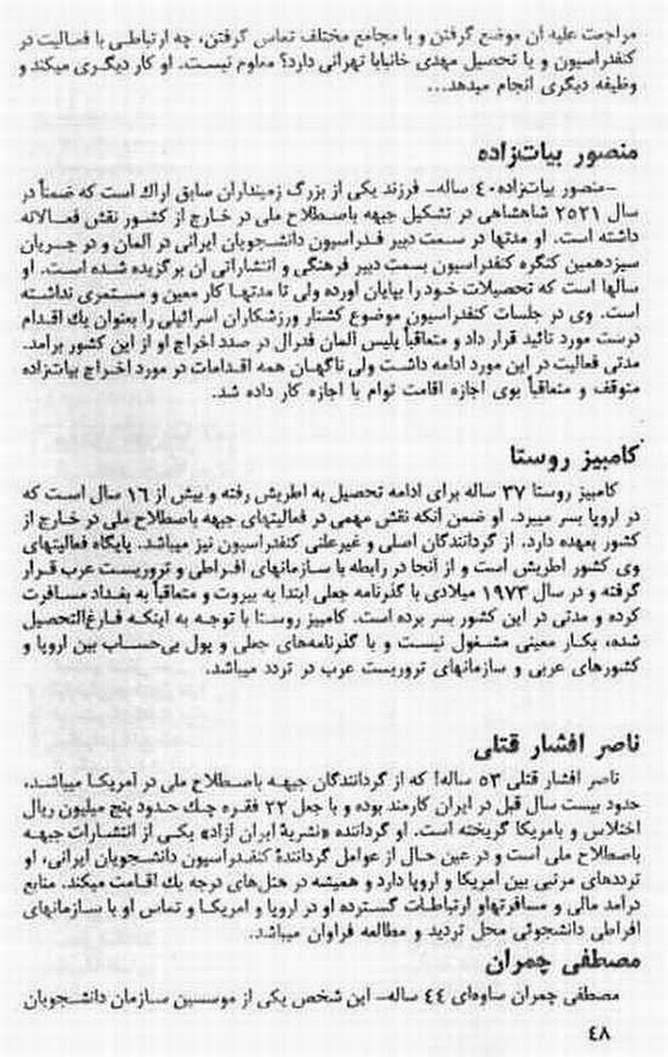 مراجعت علیه آن موضع گرفتن و با مجامع مختلف تماس گرفتن، چه ارتباطی با فعالیت در
کنفدراسیون و یا تحصیل مهدی خانبابا تهرانی دارد؟ معلوم نیست. او کار دیگری میکند و
وظیفه دیگری انجام میدهد...
منصور بیات‌زاده
-منصور بیات‌زاده ٤٠ ساله- فرزند یکی از بزرگ زمینداران سابق اراك است که ضمناً در
سال ٢٥٢١ شاهنشاهی در تشکیل جبهه باصطلاح ملی در خارج از کشور نقش فعالانه
داشته است. او مدتها در سمت دبیر فدراسیون دانشجویان ایرانی در آلمان و در جریان
سیزدهمین کنگره کنفدراسیون بسمت دبیر فرهنگی و انتشاراتی آن برگزیده شده است. او
سالها است که تحصیلات خود را بپایان آورده ولی تا مدتها کار معین و مستمری نداشته
است. وی در جلسات کنفدراسیون موضوع کشتار ورزشکاران اسرائیلی را بعنوان یك اقدام
درست مورد تائید قرار داد و متعاقباً پلیس آلمان فدرال در صدد اخراج او از این کشور برآمد.
مدتی فعالیت در این مورد ادامه داشت ولی ناگهان همه اقدامات در مورد اخراج بیات‌زاده
متوقف و متعاقباً بوی اجازه اقامت توام با اجازه کار داده شد.
کامبیز روستا
کامبیز روستا ٣٧ ساله برای ادامه تحصیل به اطریش رفته و بیش از ١٦ سال است که
در اروپا بسر میبرد. او ضمن آنکه نقش مهمی در فعالیتهای جبهه باصطلاح ملی در خارج از
کشور بعهده دارد، از گردانندگان اصلی و غیرعلنی کنفدراسیون نیز میباشد. پایگاه فعالیتهای
وی کشور اطریش است و از آنجا در رابطه با سازمانهای افراطی و تروریست عرب قرار
گرفته و در سال ١٩٧٣ میلادی با گذرنامه جعلی ابتدا به بیروت و متعاقباً به بغداد مسافرت
کرده و مدتی در این کشور بسر برده است. کامبیز روستا با توجه به اینکه فارغ‌التحصیل
شده، بکار معینی مشغول نیست و با گذرنامه‌های جعلی و پول بی‌حساب بین اروپا و
کشورهای عربی و سازمانهای تروریست عرب در تردد میباشد.
ناصر افشار قتلی
ناصر افشار قتلی ٥٣ ساله! که از گردانندگان جبهه باصطلاح ملی در آمریکا میباشد،
حدود بیست سال قبل در ایران کارمند بوده و با جعل ٢٢ فقره چك حدود پنج میلیون ریال
اختلاس و بامریکا گریخته است. او گرداننده «نشریهٔ ایران آزاد» یکی از انتشارات جبهه
باصطلاح ملی است و در عین حال از عوامل گردانندهٔ کنفدراسیون دانشجویان ایرانی، او
ترددهای مرتبی بین امریکا و اروپا دارد و همیشه در هتل‌های درجه یك اقامت میکند. منابع
درآمد مالی و مسافرتهاو ارتباطات گسترده او در اروپا و امریکا و تماس او با سازمانهای
افراطی دانشجوئی محل تردید و مطالعه فراوان میباشد.
مصطفی چمران
مصطفی چمران ساوه‌ای ٤٤ ساله- این شخص یکی از موسسین سازمان دانشجویان
٤٨